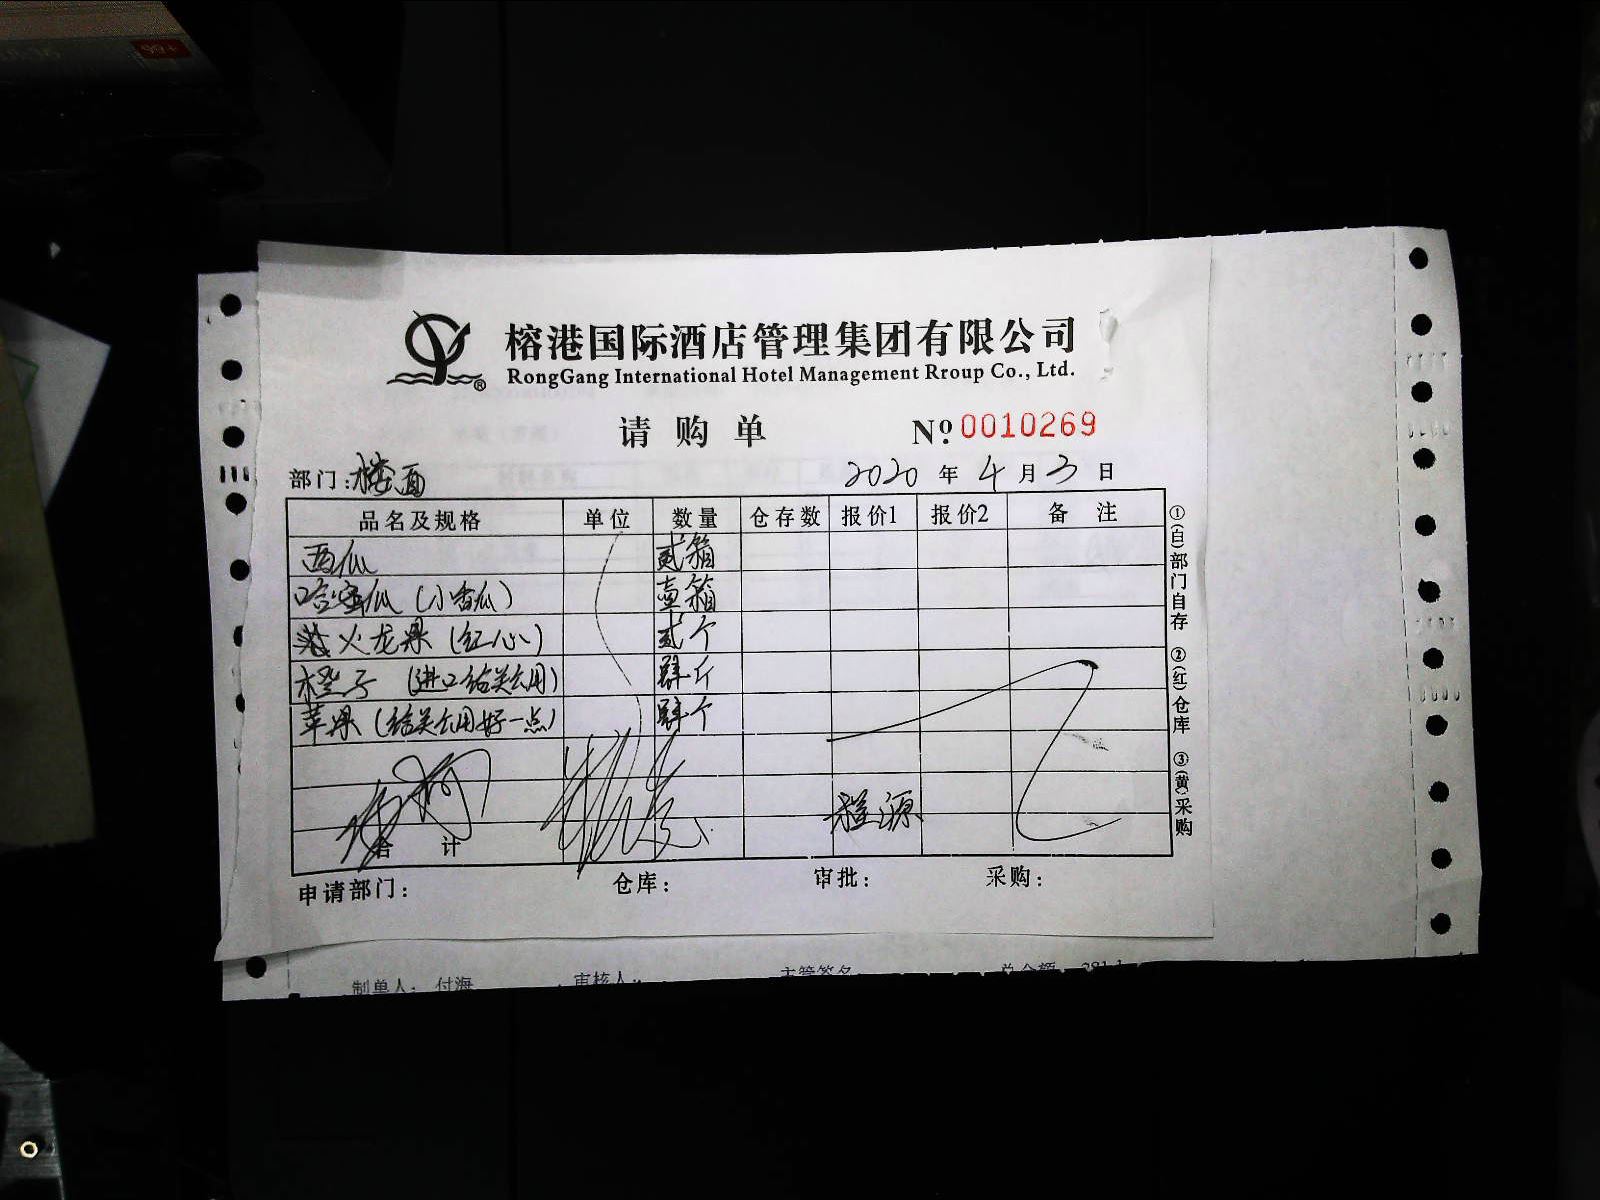 榕港国际酒店管理集团有限公司
RongGang International Hotel Management Rroup Co., Ltd.
®
请购单 Nº 0010269
部门:楼面 2020 年 4 月 3 日
品名及规格 单位 数量 仓存数 报价1 报价2 备注
西瓜 贰箱
哈蜜瓜(小香瓜) 壹箱
火龙果(红心) 贰个
橙子 (进口给关公用) 肆斤
苹果(给关公用好一点) 肆个
程源
合计
申请部门: 仓库: 审批: 采购:
①(白)部门自存 ②(红)仓库 ③(黄)采购
制单人: 付海 审核人: 主管签名 总金额